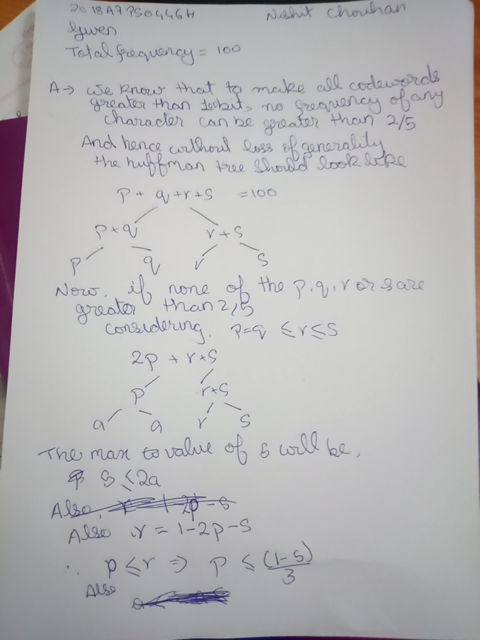 2018A7PS0446H Nishit Chouhan
Given
Total frequency = 100
A → We know that to make all codewords
greater than 1 bit, no frequency of any
character can be greater than 2/5
And hence without loss of generality
the huffman tree should look like
p + q + r + s = 100
p + q r + s
p q r s
Now, if none of the p, q, r or s are
greater than 2/5
considering, p = q ≤ r ≤ s
2p + r + s
p r + s
a a r s
The max value of s will be,
s ≤ 2a
Also,
Also r = 1 - 2p - s
∴ p ≤ r ⇒ p ≤ (1-s)/3
Also